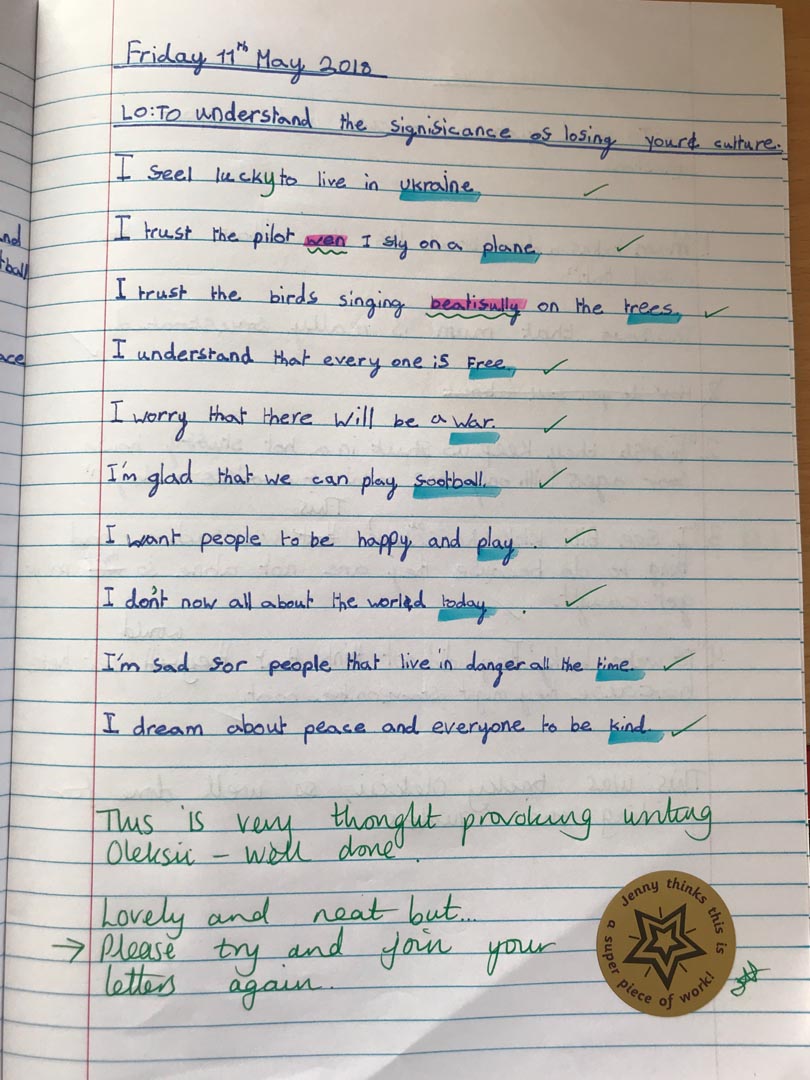 nd
tball
ace
Friday 11th May 2018
LO: To understand the significance of losing your culture.
I feel lucky to live in ukraine
I trust the pilot wen I fly on a plane.
I trust the birds singing beatifully on the trees.
I understand that every one is Free.
I worry that there will be a war.
I'm glad that we can play football.
I want people to be happy and play.
I don't now all about the world today.
I'm sad for people that live in danger all the time.
I dream about peace and everyone to be kind.
This is very thought provoking writing
Oleksii – well done.
Lovely and neat but...
→ Please try and join your
letters again.
Jenny thinks this is a super piece of work!